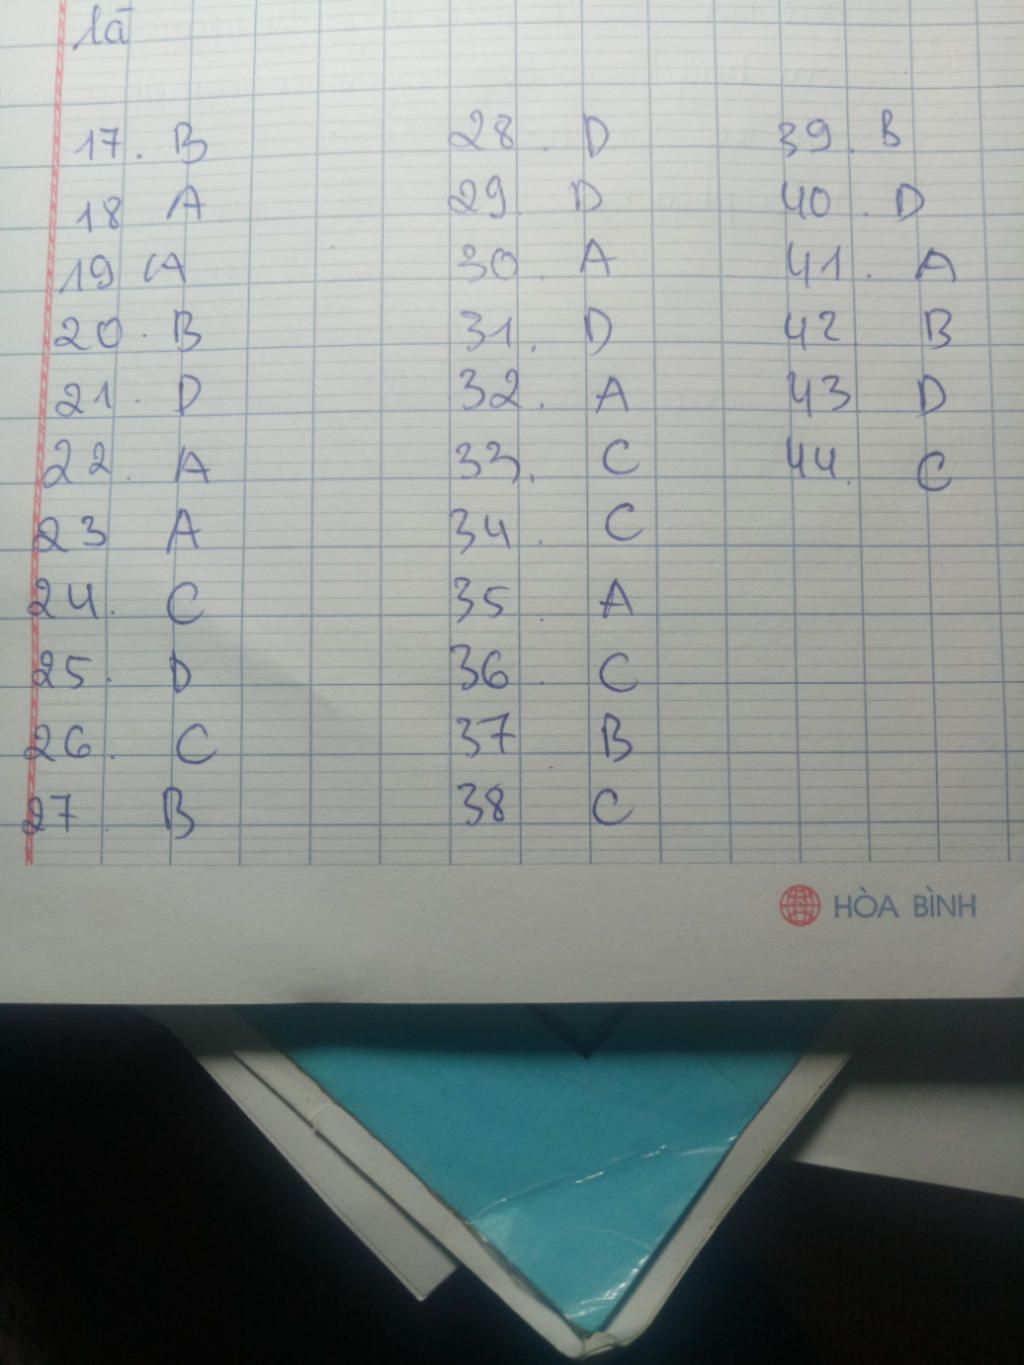 là
17. B
18 A
19 A
20. B
21. D
22. A
23 A
24. C
25. D
26. C
27 B
28. D
29. D
30 A
31. D
32. A
33. C
34. C
35. A
36. C
37 B
38 C
39. B
40. D
41. A
42 B
43 D
44. C
HÒA BÌNH